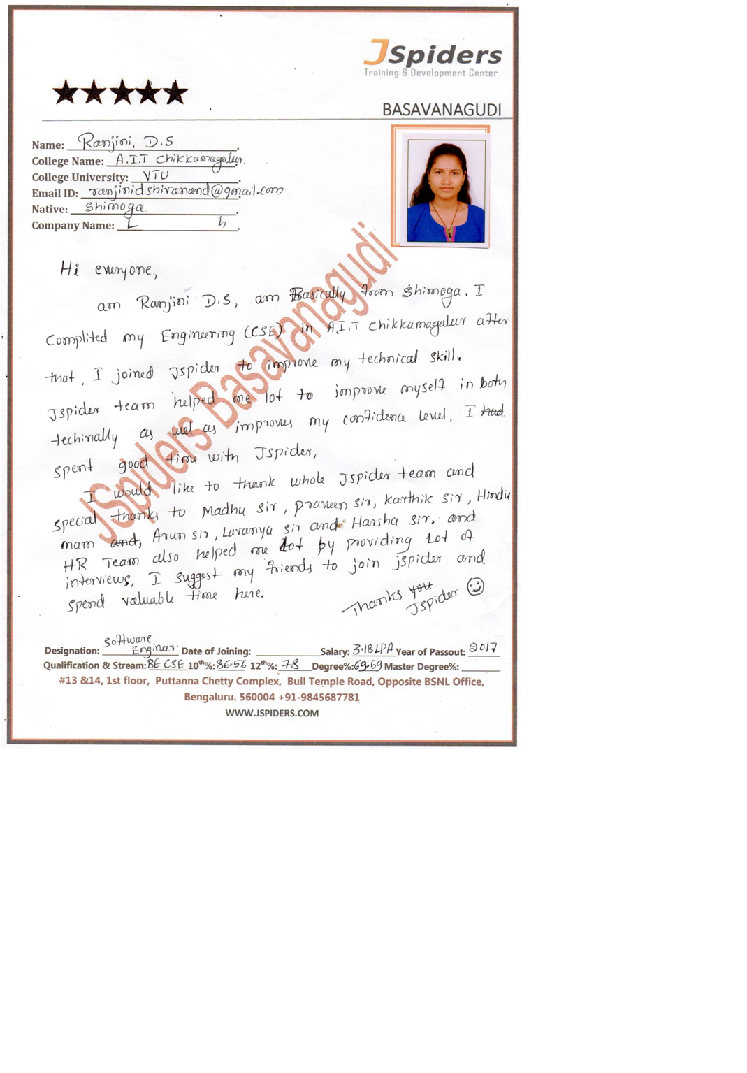 JSpiders
Training & Development Center
BASAVANAGUDI
Name: Ranjini, D.S
College Name: A.I.T chikkamagalur.
College University: VTU
Email ID: ranjinidshivanand@gmail.com
Native: Shimoga
Company Name:
Hi everyone,
am Ranjini D.S, am Basically from Shimoga. I
Complited my Engineering (CSE) in A.I.T chikkamagaleur after
that, I joined Jspider to improve my technical skill.
Jspider team helped me lot to improve myself in both
techinally as well as improves my confidence level, I had
spent good time with Jspider,
I would like to thank whole Jspider team and
special thanks to Madhu sir, praveen sir, karthik sir, Hindu
mam and, Arun sir, Lavanya sir and Harsha sir. and
HR Team also helped me lot by providing Lot of
interviews, I suggest my friends to join jspider and
spend valuable time here.
Thanks you
Jspider
JSpiders Basavanagudi
Software
Designation: Engineer Date of Joining: Salary: 3.18LPA Year of Passout: 2017
Qualification & Stream: BE CSE 10th%: 86.56 12th%: 78 Degree%: 69.69 Master Degree%:
#13 &14, 1st floor, Puttanna Chetty Complex, Bull Temple Road, Opposite BSNL Office,
Bengaluru. 560004 +91-9845687781
WWW.JSPIDERS.COM